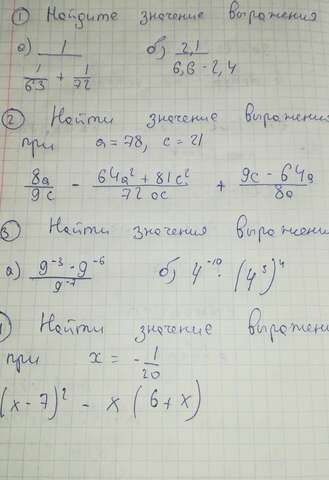 ① Найдите значение выражения
а) 1/(1/63 + 1/72) б) 2,1/(6,6 - 2,4)
② Найти значение выражени
при a = 78, c = 21
8a/9c - (64a² + 81c²)/72ac + (9c - 64a)/8a
③ Найти значения выражени
а) (9⁻³ · 9⁻⁶)/9⁻⁷ б) 4⁻¹⁰ · (4³)⁴
Найти значение выражени
при x = - 1/20
(x - 7)² - x (6 + x)